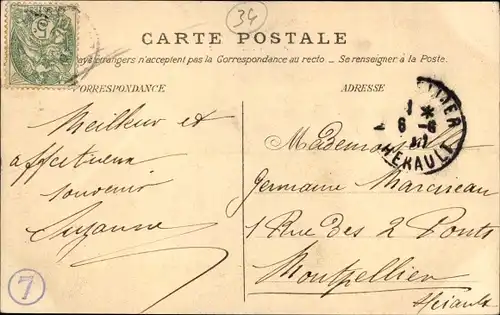 34
CARTE POSTALE
pays étrangers n'acceptent pas la Correspondance au recto _ Se renseigner à la Poste.
CORRESPONDANCE
ADRESSE
HÉRAULT
Meilleur et
affectueux
souvenir
Suzanne
Mademoiselle
Germaine Marcireau
1 Rue des 2 Ponts
Montpellier
Hérault
7